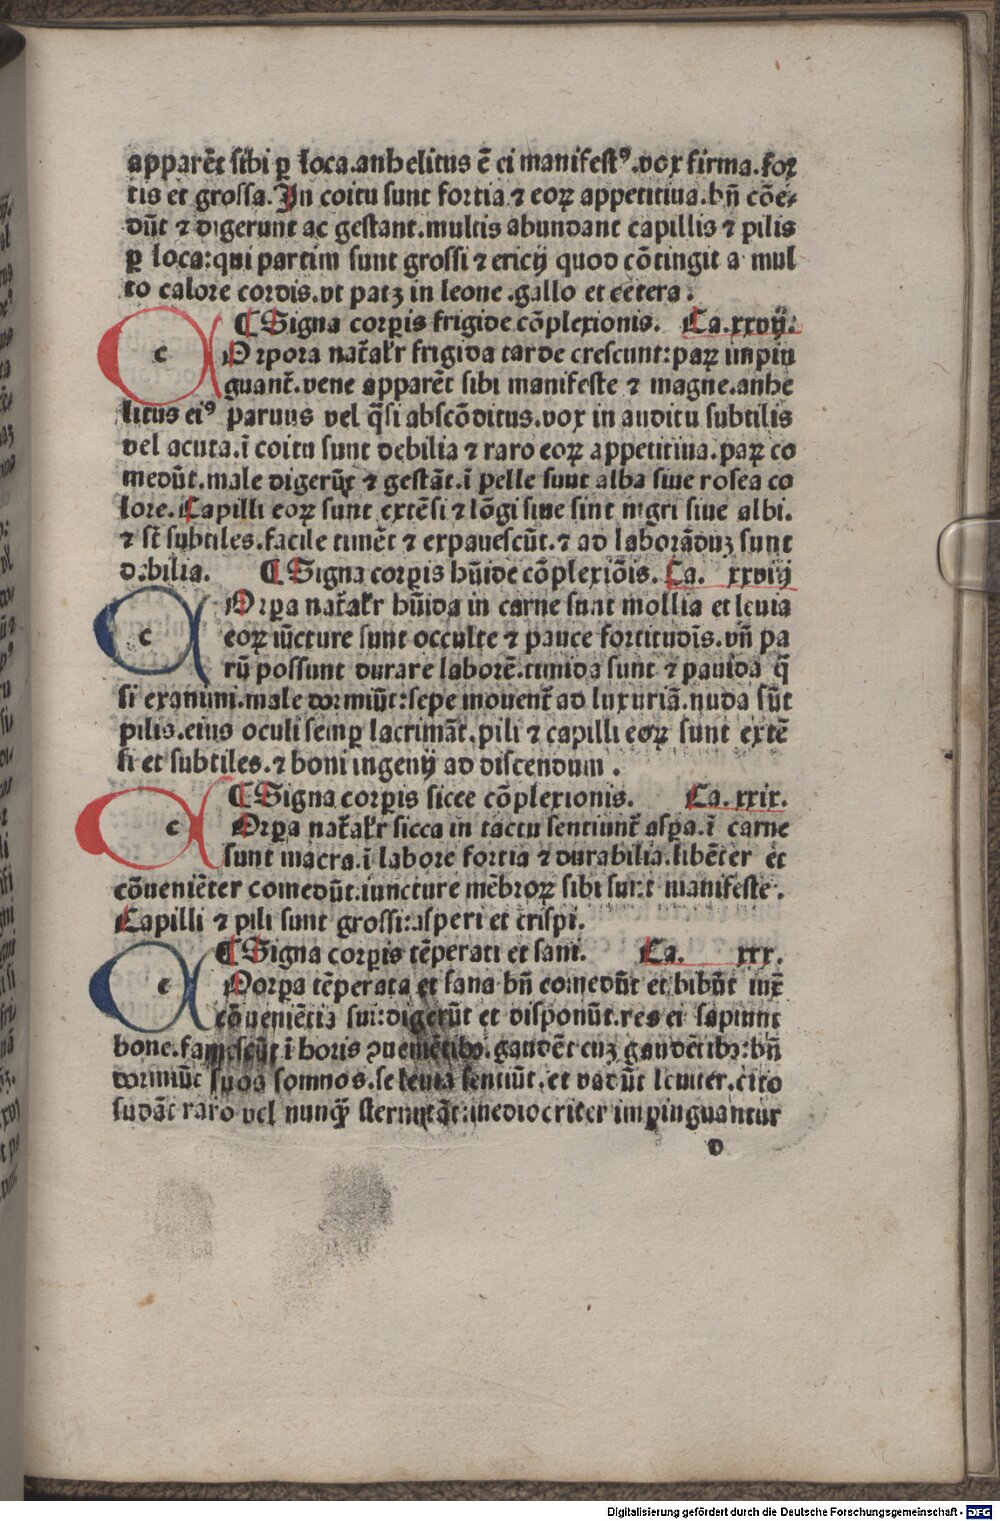 apparēt sibi ꝑ loca.anhelitus ē ei manifestꝰ.vox firma.for
tis et grossa.In coitu sunt fortia ⁊ eoꝝ appetitiua.bn̄ cōe⸗
dūt ⁊ digerunt ac gestant.multis abundant capillis ⁊ pilis
ꝑ loca:qui partim sunt grossi ⁊ ericij quod cōtingit a mul
to calore cordis.vt patꝫ in leone .gallo et cetera.
¶ Signa corꝑis frigide cōplexionis. Ca.xxvij.
c Orpora nat̄al'r frigida tarde crescunt:paꝝ inpin
guant̄.vene apparēt sibi manifeste ⁊ magne.anhe
litus eiꝰ paruus vel q̄si abscōditus.vox in auditu subtilis
vel acuta.ī coitu sunt debilia ⁊ raro eoꝝ appetitiua.paꝝ co
medūt.male digerūt ⁊ gestāt.ī pelle sunt alba siue rosea co
lore.Capilli eoꝝ sunt extēsi ⁊ lōgi siue sint nigri siue albi.
⁊ st̄ subtiles.facile timēt ⁊ expauescūt.⁊ ad laborāduꝫ sunt
debilia. ¶ Signa corꝑis hūide cōplexiōis. Ca. xxviij
c Orꝑa nat̄al'r hūida in carne sunt mollia et leuia
eoꝝ iūcture sunt occulte ⁊ pauce fortitudīs.vn̄ pa
rū possunt durare laborē.timida sunt ⁊ pauida q̄
si exanimi.male dormiūt:sepe mouent̄ ad luxuriā.nuda sūt
pilis.eius oculi semꝑ lacrimāt.pili ⁊ capilli eoꝝ sunt extē
si et subtiles.⁊ boni ingenij ad discendum .
¶ Signa corꝑis sicce cōplexionis. Ca.xxix.
c Orꝑa nat̄al'r sicca in tactu sentiunt̄ asꝑa.ī carne
sunt macra.ī labore fortia ⁊ durabilia.libēter et
cōueniēter comedūt.iuncture mēbroꝝ sibi sunt manifeste .
Capilli ⁊ pili sunt grossi:asperi et crispi.
¶ Signa corꝑis tēperati et sani. Ca. xxx.
c Corꝑa tēperata et sana bn̄ comedūt et bibūt iux̄
cōueniētia sui:digerūt et disponūt.res ei sapiunt
bone.famescūt ī horis ꝯueniētibꝫ.gaudēt cuꝫ gaudētibꝫ:bn̄
dormiūt suos somnos.se leuia sentiūt.et vadūt leuiter.cito
sudāt raro vel nunqꝫ sternutāt:mediocriter impinguantur
d
Digitalisierung gefördert durch die Deutsche Forschungsgemeinschaft - DFG